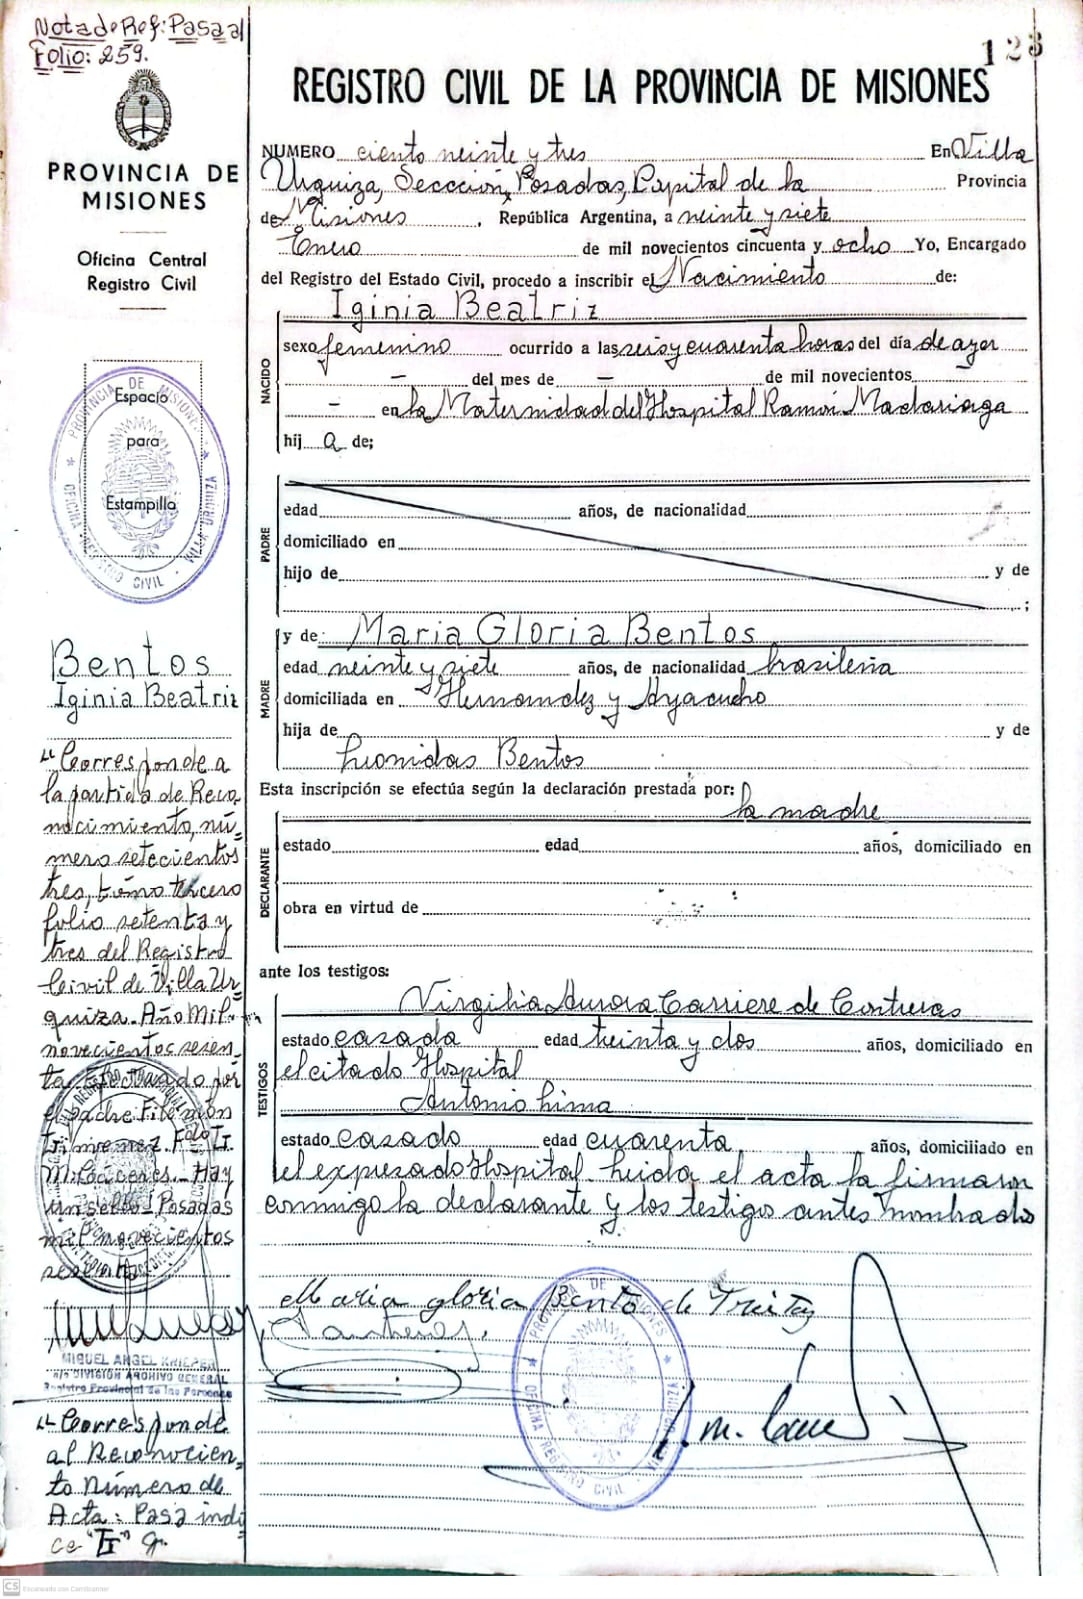 Nota de Ref: Pasa al
Folio: 259.
PROVINCIA DE
MISIONES
Oficina Central
Registro Civil
Espacio
para
Estampilla
PROVINCIA DE MISIONES
OFICINA REGISTRO CIVIL - VILLA URQUIZA
Bentos
Iginia Beatriz
"Corresponde a
la partida de Reco-
nocimiento, nú-
mero setecientos
tres, tomo tercero
folio setenta y
tres del Registro
Civil de Villa Ur-
quiza. Año Mil
novecientos sesen-
ta, efectuado por
el padre Filemón
Gimenez. Fdo
Misiones - Hay
un sello - Posadas
mil novecientos
sesenta
MIGUEL ANGEL
DIVISION ARCHIVO GENERAL
Registro Provincial de las Personas
"Corresponde
al Reconocien-
to Número de
Acta: Pasa indi-
ce "G"
123
REGISTRO CIVIL DE LA PROVINCIA DE MISIONES
NUMERO ciento veinte y tres En Villa
Urquiza, Sección, Posadas, Capital de la Provincia
de Misiones, República Argentina, a veinte y siete
Enero de mil novecientos cincuenta y ocho Yo, Encargado
del Registro del Estado Civil, procedo a inscribir el Nacimiento de:
NACIDO
Iginia Beatriz
sexo femenino ocurrido a las seis y cuarenta horas del día de ayer
— del mes de — de mil novecientos
- en la Maternidad del Hospital Ramón Madariaga
hij a de;
PADRE
edad años, de nacionalidad
domiciliado en
hijo de y de
;
MADRE
y de: Maria Gloria Bentos
edad veinte y siete años, de nacionalidad brasileña
domiciliada en Hernandez y Ayacucho
hija de y de
Leonidas Bentos
Esta inscripción se efectúa según la declaración prestada por: la madre
DECLARANTE
estado edad años, domiciliado en
obra en virtud de
ante los testigos:
TESTIGOS
Virgilia Aurora Carriere de Contreras
estado casada edad treinta y dos años, domiciliado en
el citado Hospital
Antonio Lima
estado casado edad cuarenta años, domiciliado en
el expresado Hospital. Leida el acta la firmaron
conmigo la declarante y los testigos antes nombrados
Maria gloria Bento de
PROVINCIA DE MISIONES
OFICINA REGISTRO CIVIL - VILLA URQUIZA
CS Escaneado con CamScanner